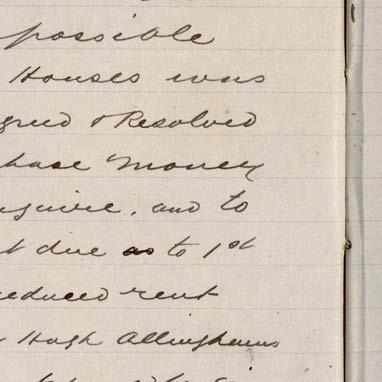 possible
Houses was
greed & Resolved
chase money
nquire, and to
t due as to 1st
reduced rent
Hugh Allinghams